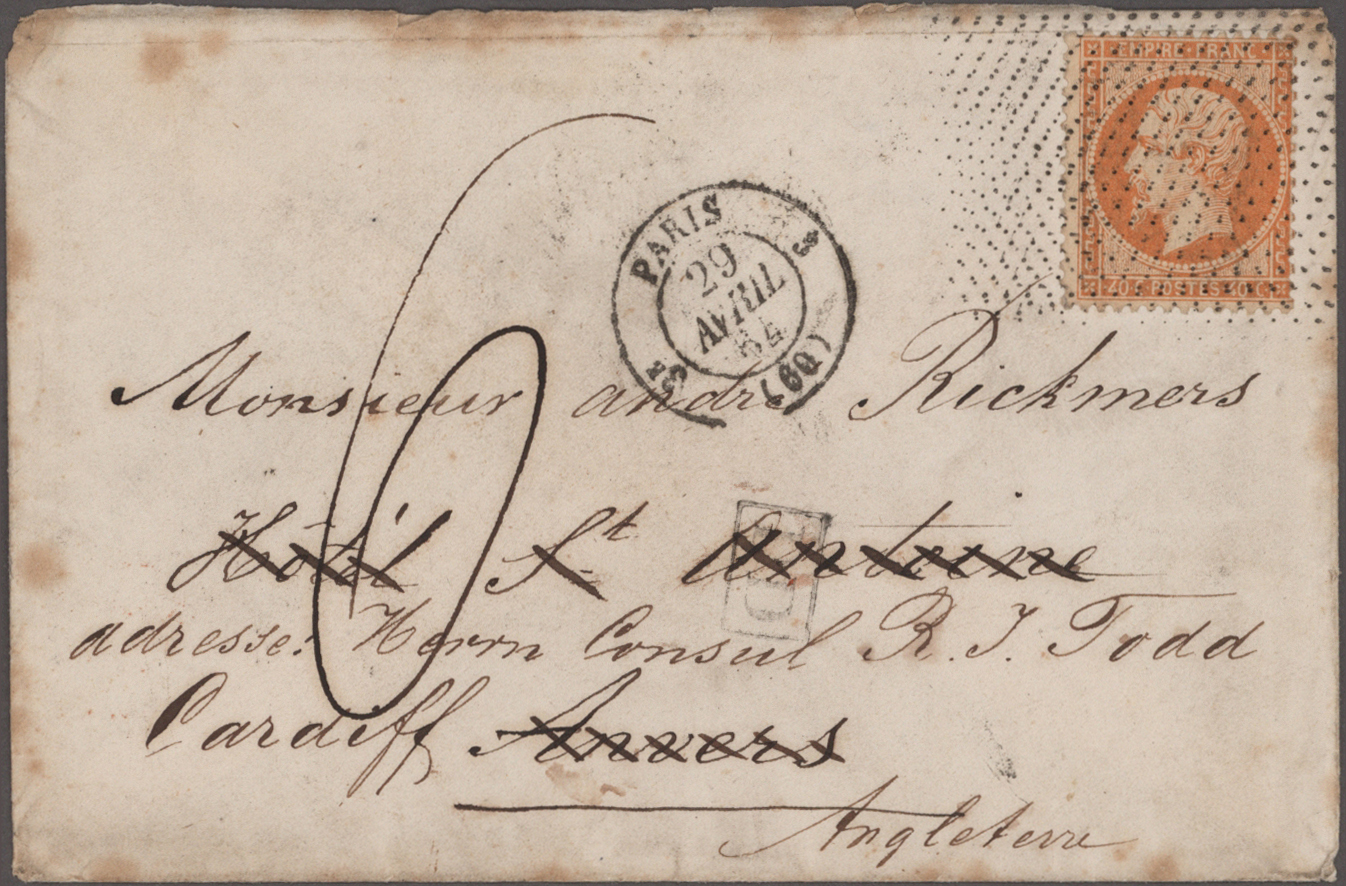 EMPIRE FRANC
40 C POSTES 40 C
PARIS
29
AVRIL
64
(60)
Monsieur andré Rickmers
Hôtel St Antoine
adresse: Herrn Consul R. J. Todd
Cardiff Anvers
Angleterre
PD
6